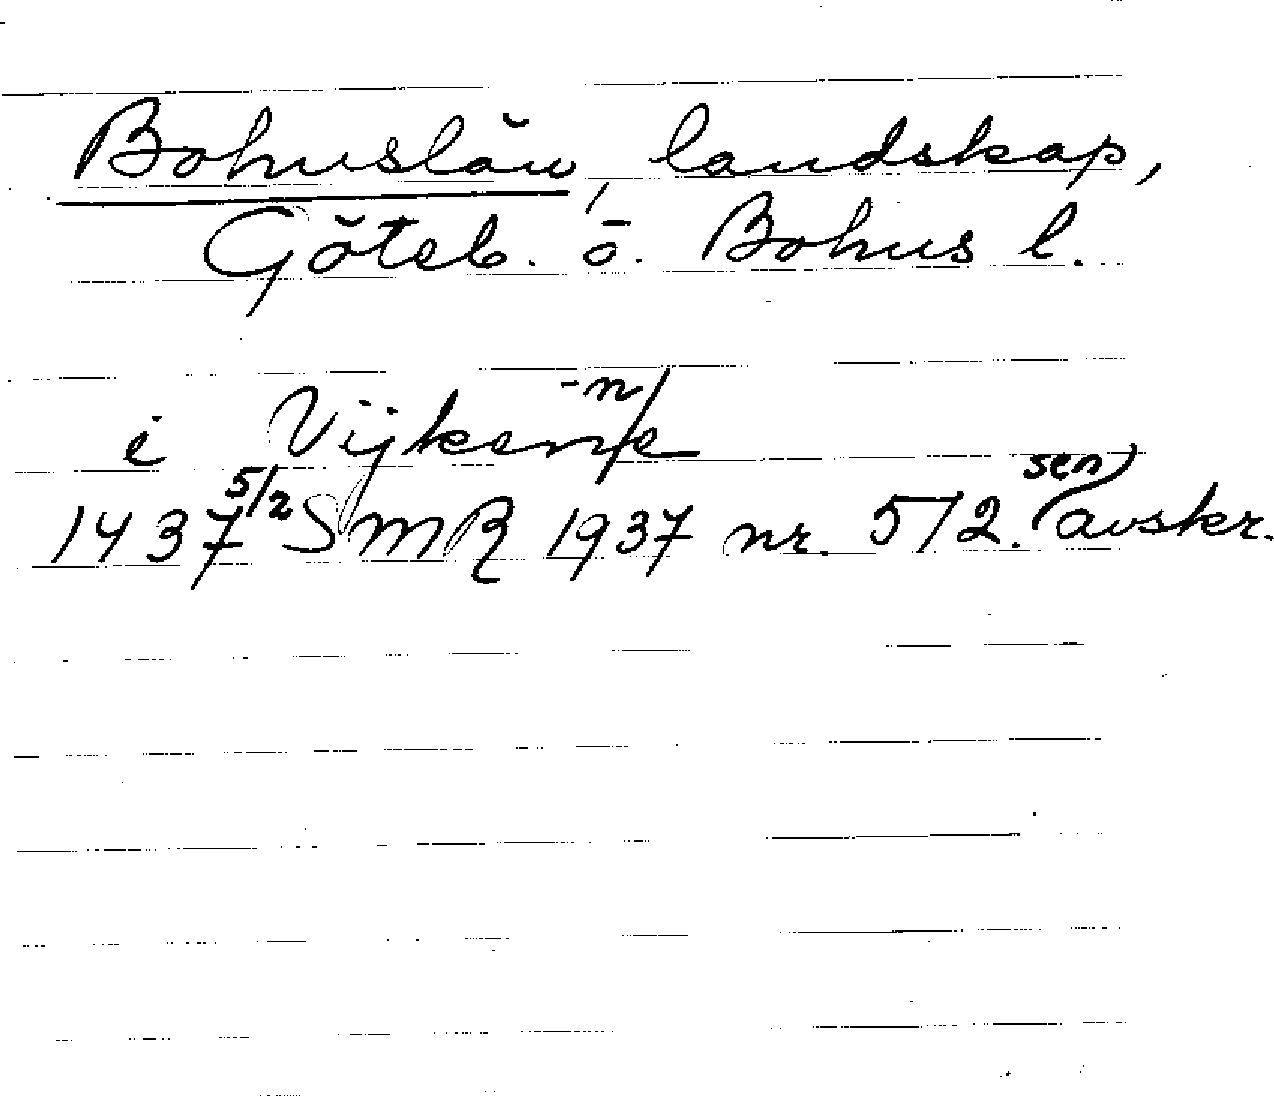 Bohuslän, landskap,
Göteb. o. Bohus l.
i Vijkenne -n/
1437 5/2 SMR 1937 nr. 572. (sen avskr.